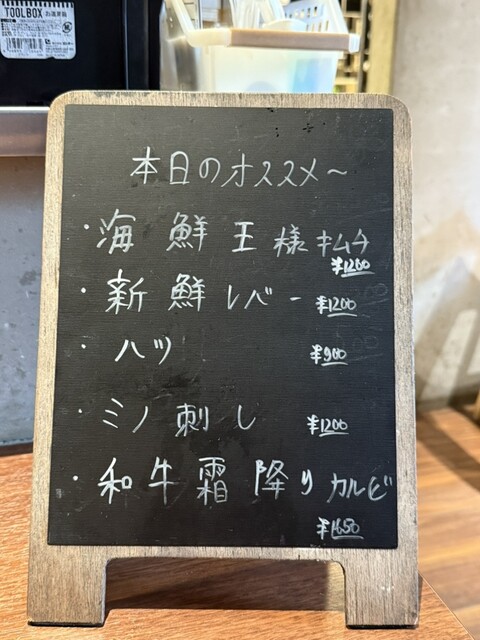 TOOLBOX お道具箱
本日のオススメ〜
・海鮮王様キムチ
¥1200
・新鮮レバー ¥1200
・ハツ ¥900
・ミノ刺し ¥1200
・和牛霜降りカルビ
¥1650